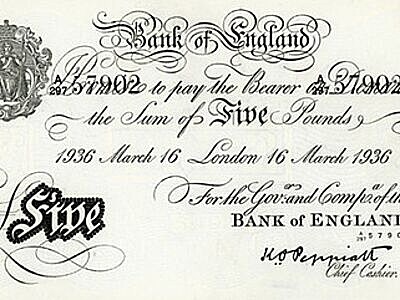 Bank of England
A/297 57902 A/297 57902
I Promise to pay the Bearer on Demand
the Sum of Five Pounds
1936 March 16 London 16 March 1936
For the Gov.r and Comp.a of the
Five
BANK of ENGLAND
A/297 5790
K.O. Peppiatt
Chief Cashier.